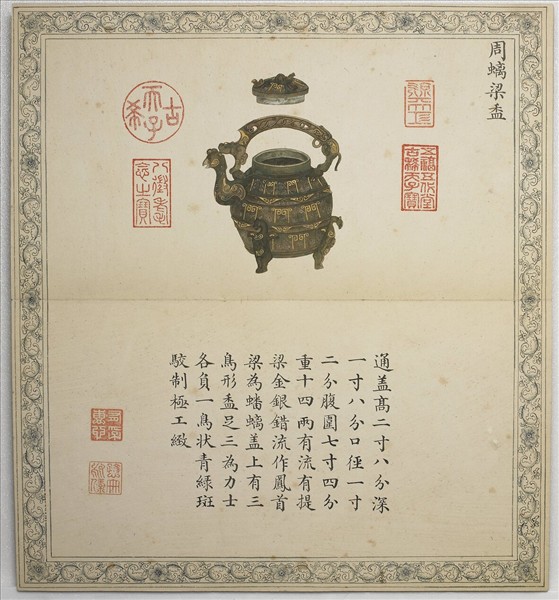 周螭梁盉
五福五代堂古稀天子寶
古希天子
八徵耄念之寶
通盖高二寸八分深
一寸八分口徑一寸
二分腹圍七寸四分
重十四兩有流有提
梁金銀錯流作鳳首
梁為蟠螭盖上有三
鳥形盉足三為力士
各負一鳥狀青綠斑
駮制極工緻